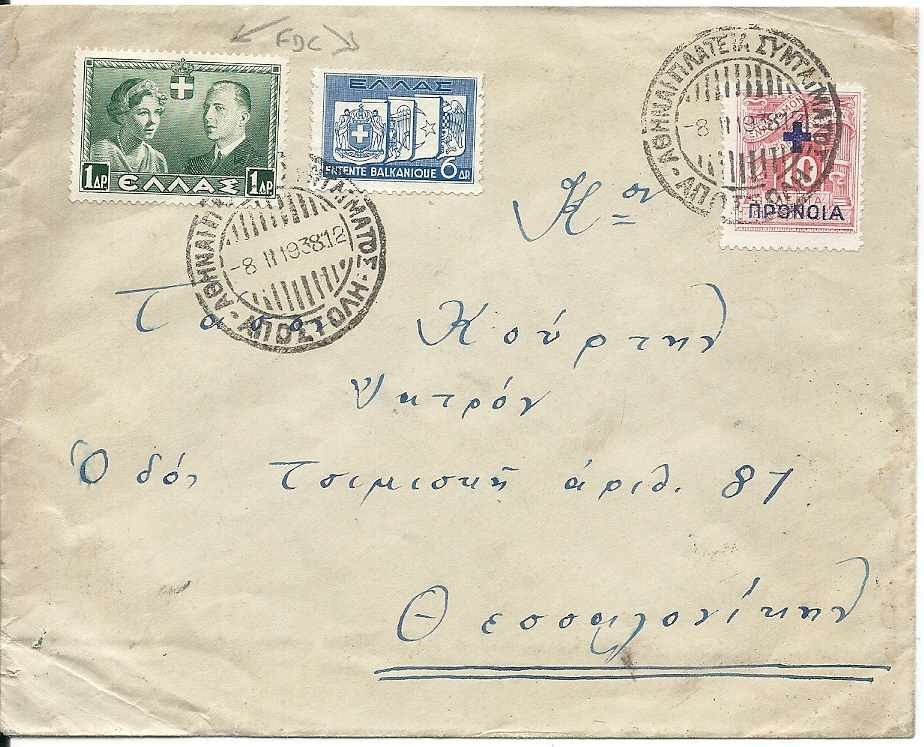 FDC
ΕΛΛΑΣ
1ΔΡ ΕΛΛΑΣ 1ΔΡ
ENTENTE BALKANIQUE 6 ΔΡ
10
ΠΡΟΝΟΙΑ
ΑΘΗΝΑΙ ΠΛΑΤΕΙΑ ΣΥΝΤΑΓΜΑΤΟΣ
-8 II 1938.12
ΑΠΟΣΤΟΛΗ
ΣΥΝΤΑΓΜΑΤΟΣ·ΑΠΟΣΤΟΛΗ·ΑΘΗΝΑΙ
-8 II 1938.12
Κον
Τάσον Κούρτην
Ιατρόν
Οδός Τσιμισκή άριθ. 87
Θεσσαλονίκην